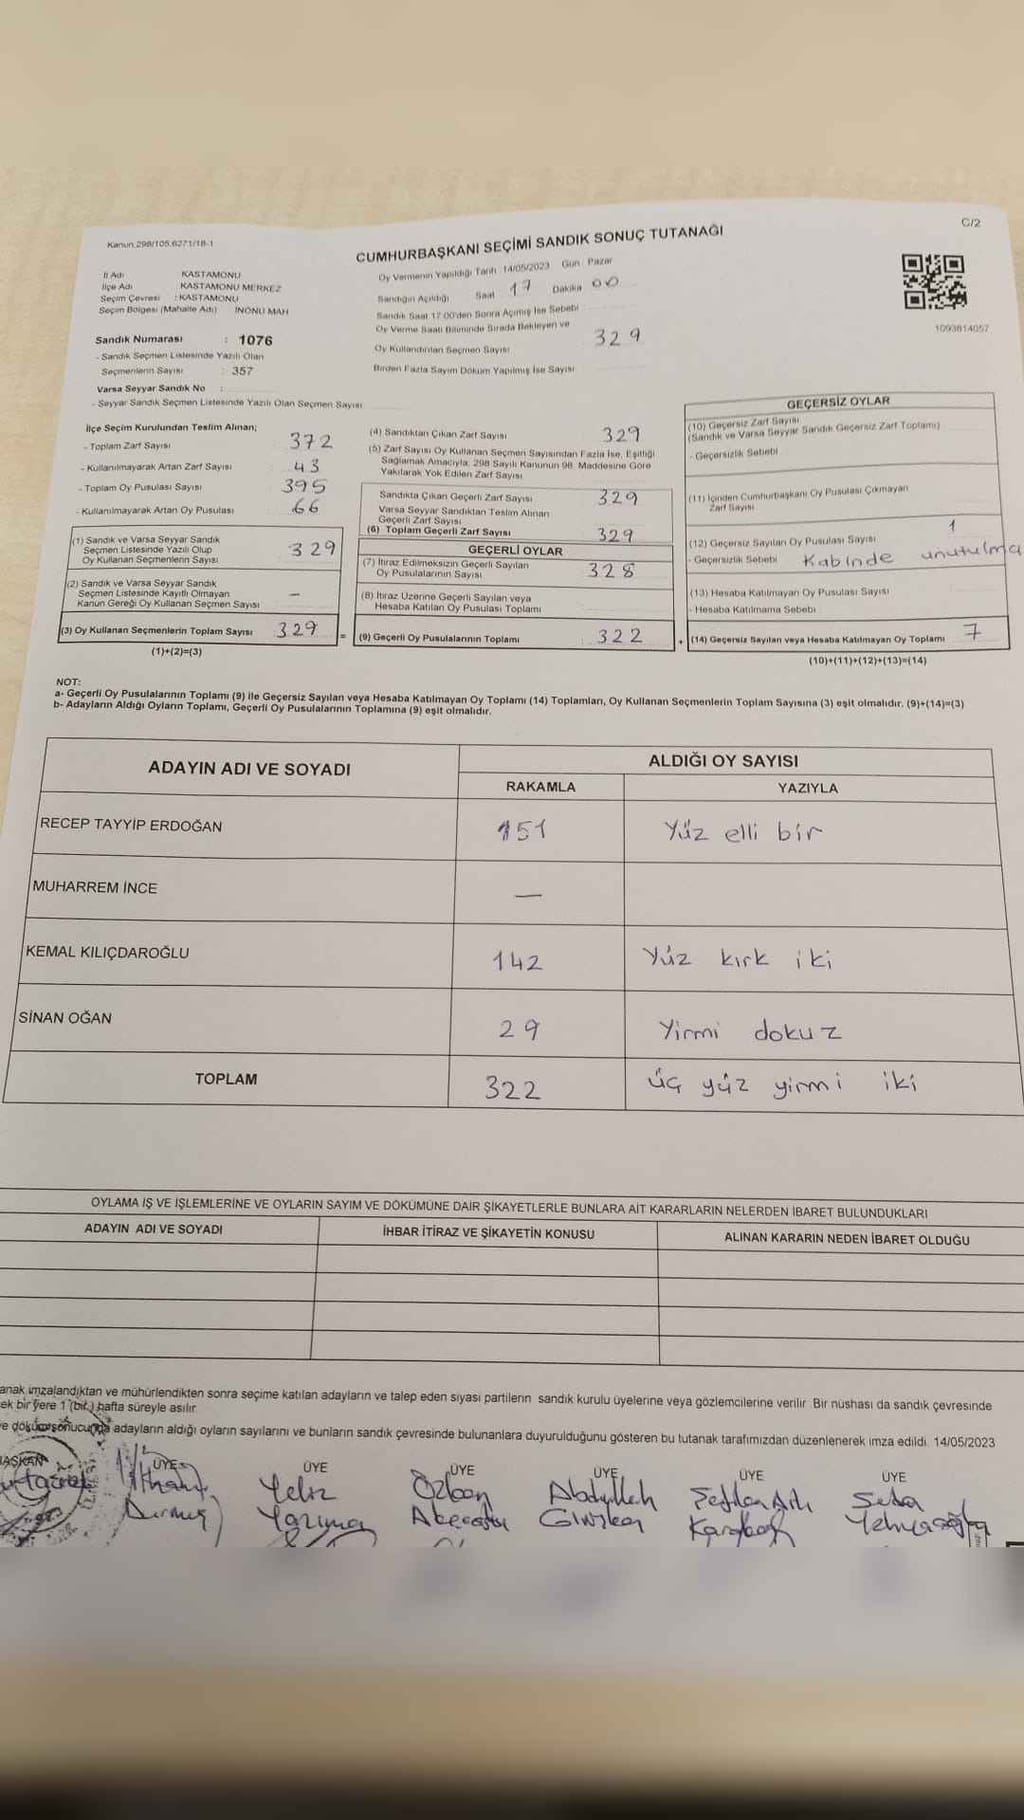 Kanun 298/105.6271/18-1
C/2
CUMHURBAŞKANI SEÇİMİ SANDIK SONUÇ TUTANAĞI
İl Adı KASTAMONU
İlçe Adı KASTAMONU MERKEZ
Seçim Çevresi : KASTAMONU
Seçim Bölgesi (Mahalle Adı) İNÖNÜ MAH
Oy Vermenin Yapıldığı Tarih : 14/05/2023 Gün : Pazar
Sandığın Açıldığı Saat 17 Dakika 00
Sandık Saat 17.00'den Sonra Açımış İse Sebebi
Oy Verme Saati Bitiminde Sırada Bekleyen ve
Oy Kullandırılan Seçmen Sayısı 329
Birden Fazla Sayım Döküm Yapılmış İse Sayısı
1093814057
Sandık Numarası : 1076
- Sandık Seçmen Listesinde Yazılı Olan
Seçmenlerin Sayısı : 357
Varsa Seyyar Sandık No :
- Seyyar Sandık Seçmen Listesinde Yazılı Olan Seçmen Sayısı
İlçe Seçim Kurulundan Teslim Alınan;
- Toplam Zarf Sayısı 372
- Kullanılmayarak Artan Zarf Sayısı 43
- Toplam Oy Pusulası Sayısı 395
- Kullanılmayarak Artan Oy Pusulası 66
(1) Sandık ve Varsa Seyyar Sandık
Seçmen Listesinde Yazılı Olup
Oy Kullanan Seçmenlerin Sayısı 329
(2) Sandık ve Varsa Seyyar Sandık
Seçmen Listesinde Kayıtlı Olmayan
Kanun Gereği Oy Kullanan Seçmen Sayısı -
(3) Oy Kullanan Seçmenlerin Toplam Sayısı 329 =
(1)+(2)=(3)
(4) Sandıktan Çıkan Zarf Sayısı 329
(5) Zarf Sayısı Oy Kullanan Seçmen Sayısından Fazla İse, Eşitliği
Sağlamak Amacıyla, 298 Sayılı Kanunun 98. Maddesine Göre
Yakılarak Yok Edilen Zarf Sayısı
Sandıkta Çıkan Geçerli Zarf Sayısı 329
Varsa Seyyar Sandıktan Teslim Alınan
Geçerli Zarf Sayısı
(6) Toplam Geçerli Zarf Sayısı 329
GEÇERLİ OYLAR
(7) İtiraz Edilmeksizin Geçerli Sayılan
Oy Pusulalarının Sayısı 328
(8) İtiraz Üzerine Geçerli Sayılan veya
Hesaba Katılan Oy Pusulası Toplamı
(9) Geçerli Oy Pusulalarının Toplamı 322 +
GEÇERSİZ OYLAR
(10) Geçersiz Zarf Sayısı
(Sandık ve Varsa Seyyar Sandık Geçersiz Zarf Toplamı)
- Geçersizlik Sebebi
(11) İçinden Cumhurbaşkanı Oy Pusulası Çıkmayan
Zarf Sayısı
(12) Geçersiz Sayılan Oy Pusulası Sayısı 1
- Geçersizlik Sebebi Kabinde unutulma
(13) Hesaba Katılmayan Oy Pusulası Sayısı
- Hesaba Katılmama Sebebi
(14) Geçersiz Sayılan veya Hesaba Katılmayan Oy Toplamı 7
(10)+(11)+(12)+(13)=(14)
NOT:
a- Geçerli Oy Pusulalarının Toplamı (9) ile Geçersiz Sayılan veya Hesaba Katılmayan Oy Toplamı (14) Toplamları, Oy Kullanan Seçmenlerin Toplam Sayısına (3) eşit olmalıdır. (9)+(14)=(3)
b- Adayların Aldığı Oyların Toplamı, Geçerli Oy Pusulalarının Toplamına (9) eşit olmalıdır.
ADAYIN ADI VE SOYADI
ALDIĞI OY SAYISI
RAKAMLA YAZIYLA
RECEP TAYYİP ERDOĞAN 151 Yüz elli bir
MUHARREM İNCE —
KEMAL KILIÇDAROĞLU 142 Yüz kırk iki
SİNAN OĞAN 29 Yirmi dokuz
TOPLAM 322 üç yüz yirmi iki
OYLAMA İŞ VE İŞLEMLERİNE VE OYLARIN SAYIM VE DÖKÜMÜNE DAİR ŞİKAYETLERLE BUNLARA AİT KARARLARIN NELERDEN İBARET BULUNDUKLARI
ADAYIN ADI VE SOYADI İHBAR İTİRAZ VE ŞİKAYETİN KONUSU ALINAN KARARIN NEDEN İBARET OLDUĞU
anak imzalandıktan ve mühürlendikten sonra seçime katılan adayların ve talep eden siyasi partilerin sandık kurulu üyelerine veya gözlemcilerine verilir. Bir nüshası da sandık çevresinde
ek bir yere 1 (bir) hafta süreyle asılır.
e döküm sonucunda adayların aldığı oyların sayılarını ve bunların sandık çevresinde bulunanlara duyurulduğunu gösteren bu tutanak tarafımızdan düzenlenerek imza edildi. 14/05/2023
BAŞKAN ÜYE ÜYE ÜYE ÜYE ÜYE ÜYE
İlhami Yeliz Özlem Abdullah Seda
Durmuş